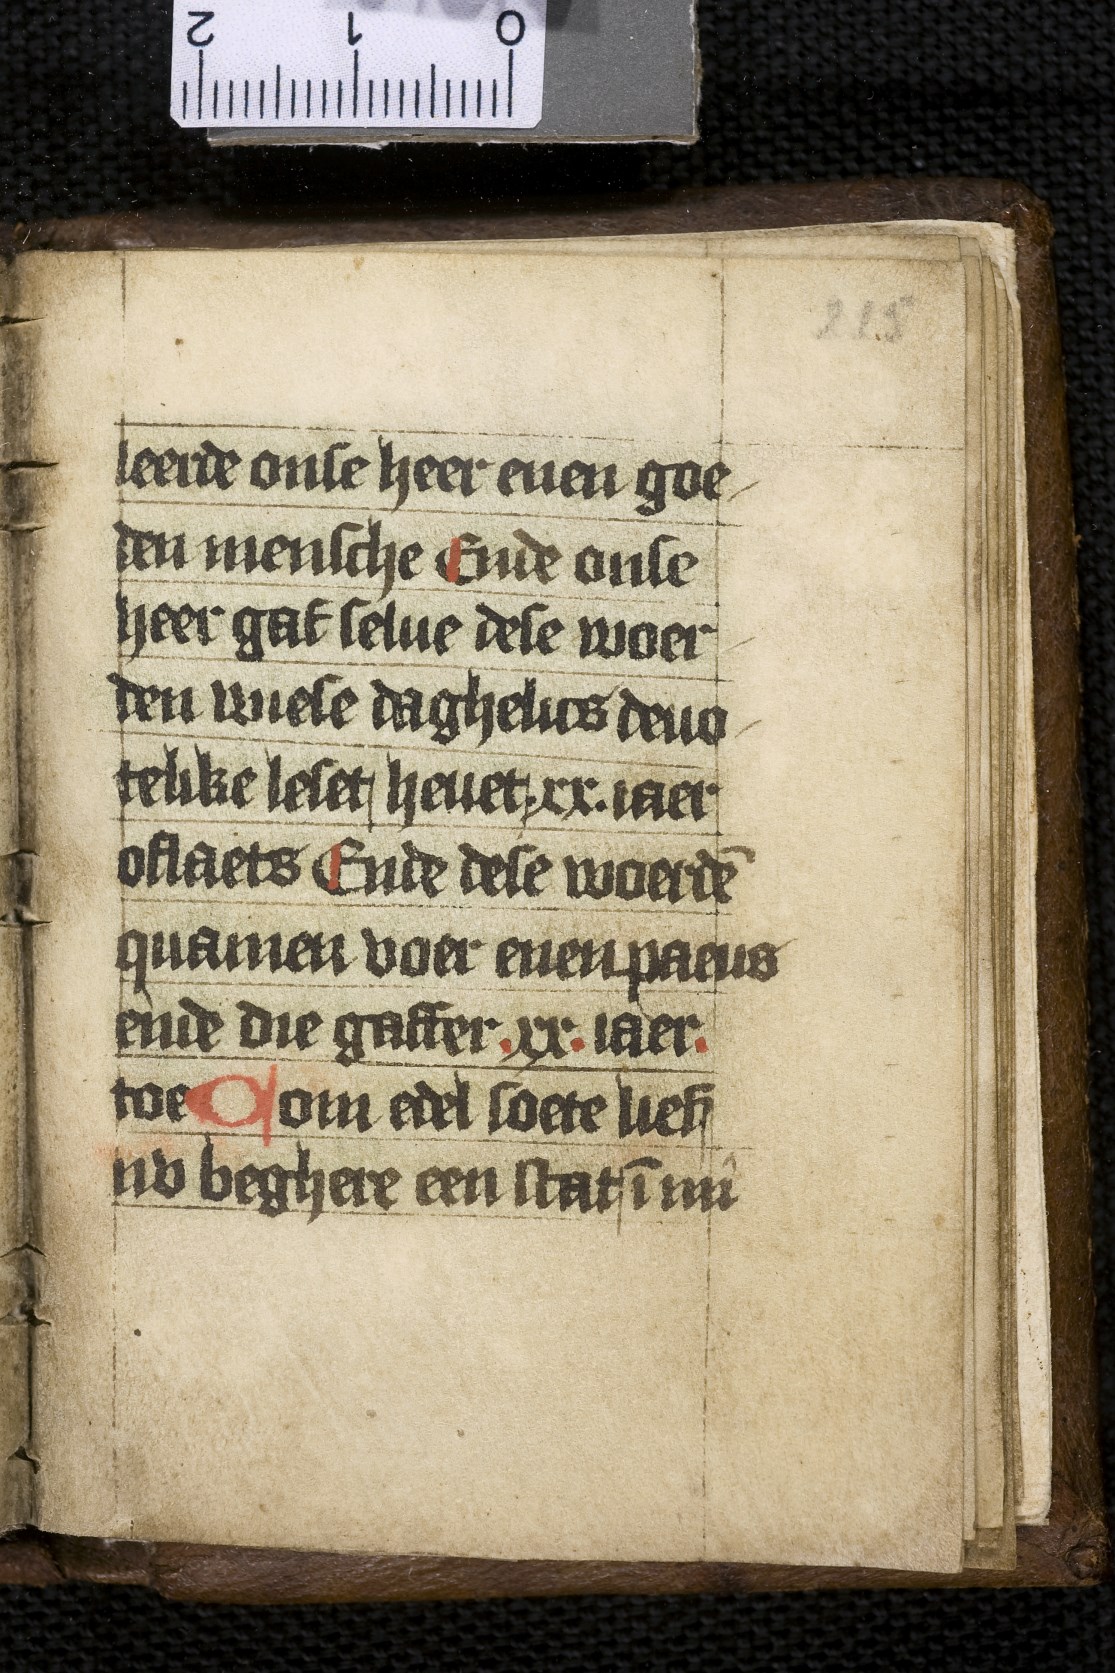 2 1 0
215
leerde onse heer enen goe-
den mensche Ende onse
heer gaf selue dese woer-
den wiese daghelics deuo-
telike leset heuet .xx. iaer
oflaets Ende dese woerdē
quamen voer enen paeus
ende die gaffer .xx. iaer.
toe O om edel soete lief
nv beghere een stat ī mi